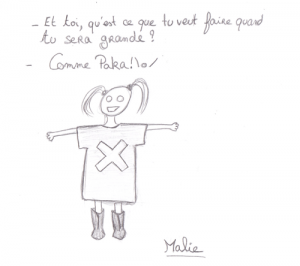 - Et toi, qu'est ce que tu veut faire quand
tu sera grande ?
- Comme Paka ! \o/
Malie